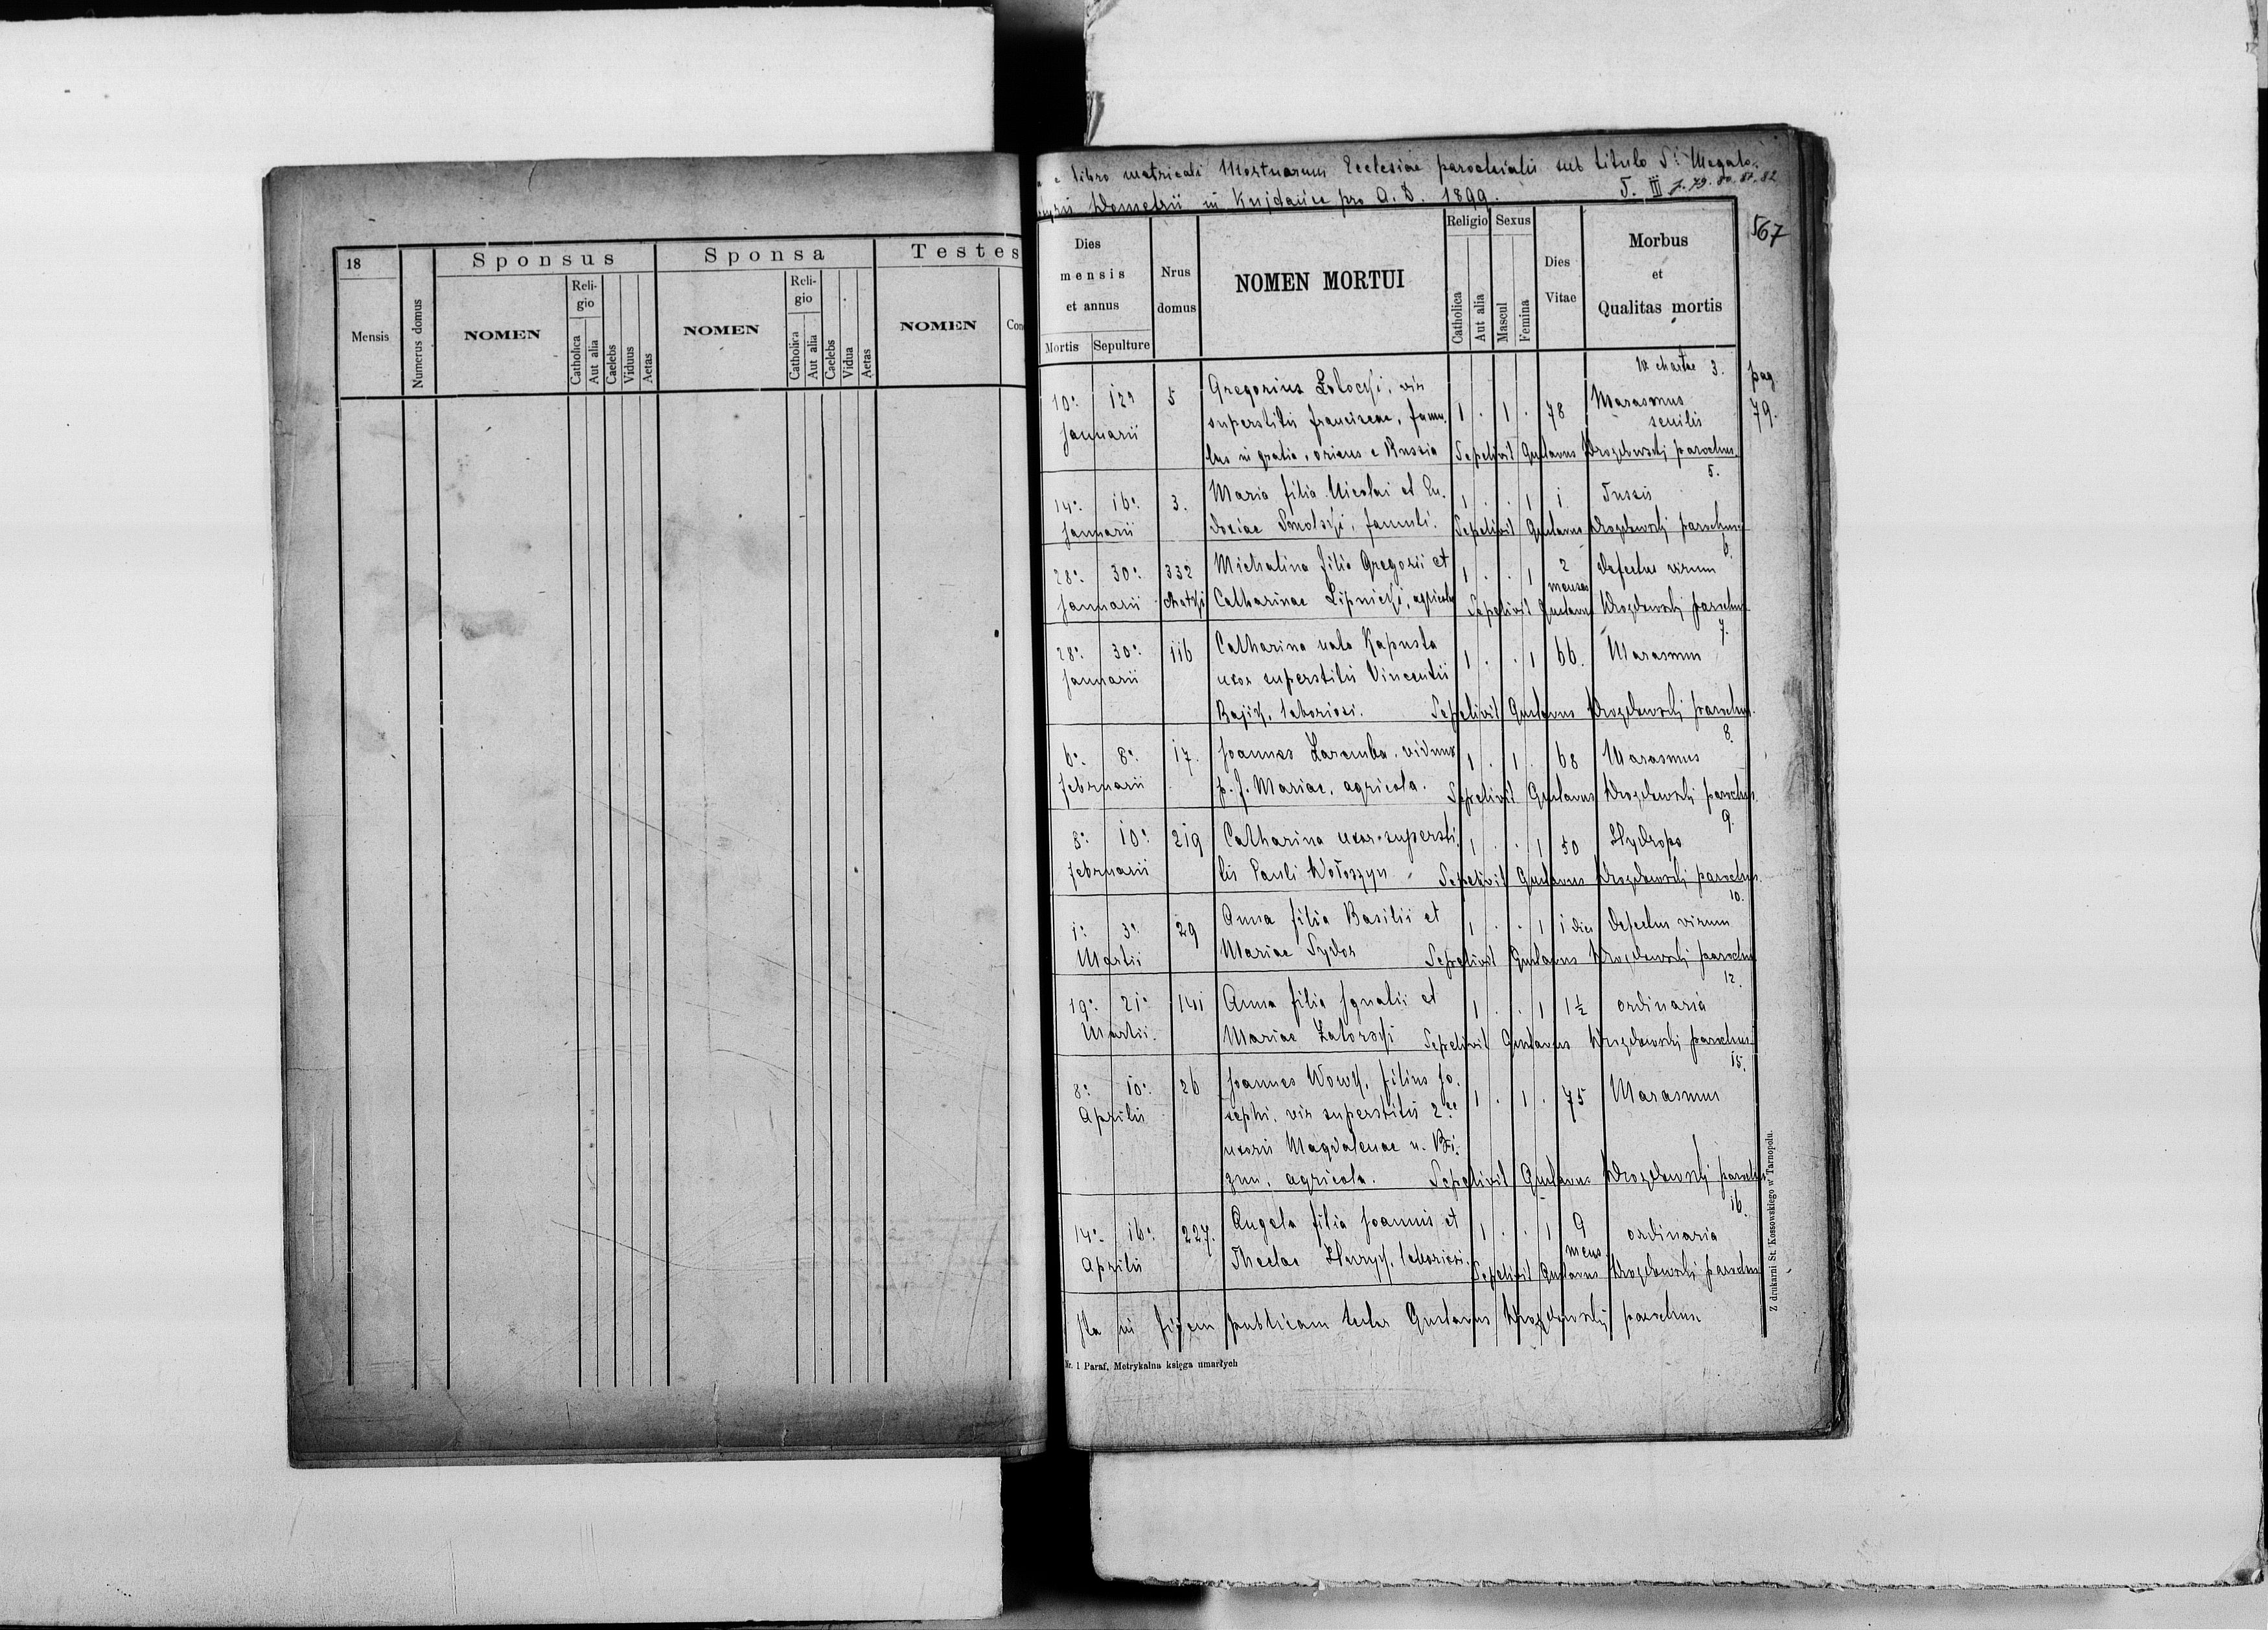 18
Mensis
Numerus domus
Sponsus
NOMEN
Reli-
gio
Catholica
Aut alia
Caelebs
Viduus
Aetas
Sponsa
NOMEN
Reli-
gio
Catholica
Aut alia
Caelebs
Vidua
Aetas
Testes
NOMEN
e libro metricali Mortuorum Ecclesiae parochialis sub titulo Sti Megalo-
Demetrii in Kujdańce pro A. D. 1899.
T. III p. 79. 80. 81. 82
567
Dies
mensis
et annus
Mortis Sepulture
Nrus
domus
NOMEN MORTUI
Religio
Catholica
Aut alia
Sexus
Mascul
Femina
Dies
Vitae
Morbus
et
Qualitas mortis
3.
pag
79.
10. 12. 5 Gregorius vir 1 . 1 . 78 Marasmus
Januarii superstitis Franciscae, famu- senilis
lus in gratia, oriens e Russia Sepelivit Gustavus Drozdowskij parochus
5.
14. 16. 3. Maria filia Nicolai et Eu- 1 . . 1 1 Tussis
Januarii doxiae Smolski, famuli. Sepelivit Gustavus Drozdowskij parochus
6.
28. 30. 332 Michalina filia Gregorii et 1 . . 1 2 menses Defectus virium
Januarii Chatki Catharinae Lipnicki, agricolae Sepelivit Gustavus Drozdowskij parochus
7.
28. 30. 116 Catharina nata Kapusta 1 . . 1 66. Marasmus
Januarii uxor superstitis Vincentii
laboriosi. Sepelivit Gustavus Drozdowskij parochus.
8.
6. 8. 17. Joannes Zaremba, viduus 1 . 1 . 68 Marasmus
Februarii p. f. Mariae, agricola. Sepelivit Gustavus Drozdowskij parochus.
9.
8. 10. 219 Catharina uxor supersti- 1 . . 1 50 Hydrops
Februarii tis Pauli Wołoszyn Sepelivit Gustavus Drozdowskij parochus.
10.
1. 3. 29 Anna filia Basilii et 1 . . 1 1 dies Defectus virium
Martii Mariae Sydor Sepelivit Gustavus Drozdowskij parochus
12.
19. 21. 141 Anna filia Ignatii et 1 . . 1 1½ ordinaria
Martii. Mariae Zatorski Sepelivit Gustavus Drozdowskij parochus.
15.
8. 10. 26 Joannes Wowk, filius Jo- 1 . 1 . 75 Marasmus
Aprilis sephi, vir superstitis 2ae
uxoris Magdalenae n.
agricola. Sepelivit Gustavus Drozdowskij parochus
16.
14. 16. 227. Angela filia Joannis et 1 . . 1 9 mens. ordinaria
Aprilis Theclae laboriosi. Sepelivit Gustavus Drozdowskij parochus
Ita in fidem publicam testor Gustavus Drozdowskij parochus
Nr. 1 Paraf. Metrykalna księga umarłych
Z drukarni St. Kossowskiego w Tarnopolu.